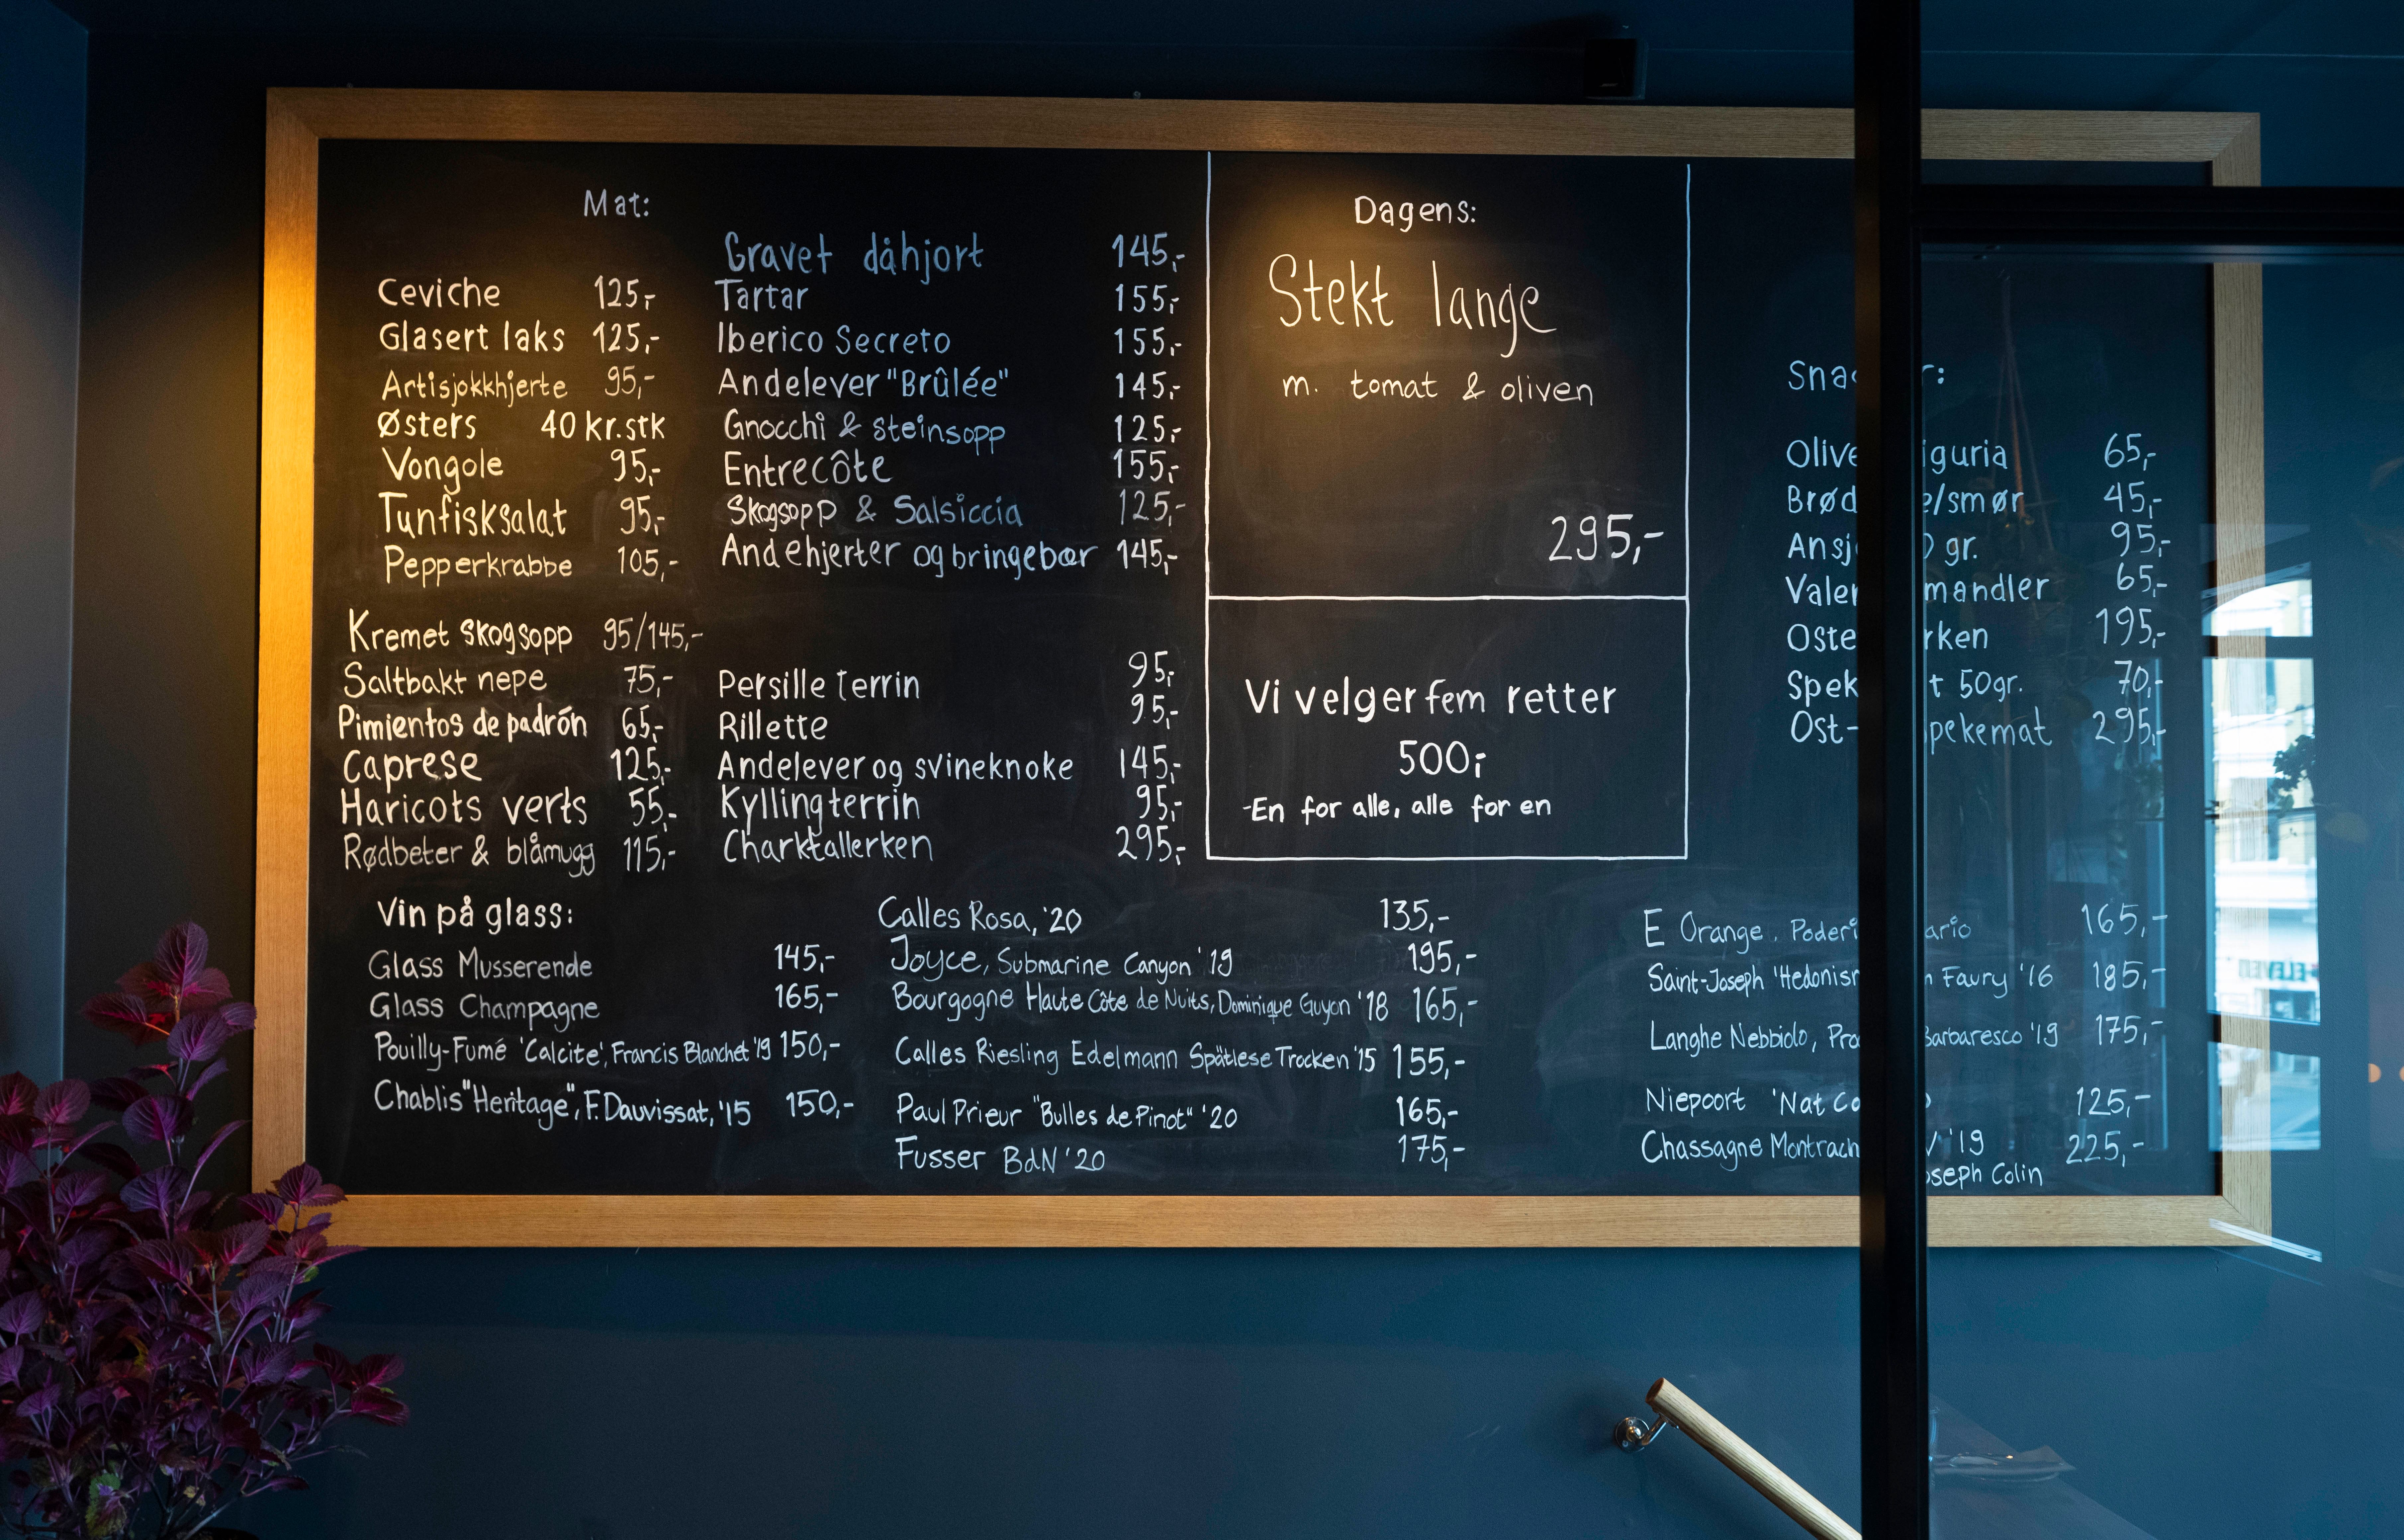 Mat:
Ceviche 125,-
Glasert laks 125,-
Artisjokkhjerte 95,-
Østers 40 kr.stk
Vongole 95,-
Tunfisksalat 95,-
Pepperkrabbe 105,-
Kremet skogsopp 95/145,-
Saltbakt nepe 75,-
Pimientos de padrón 65,-
Caprese 125,-
Haricots verts 55,-
Rødbeter & blåmugg 115,-
Gravet dåhjort 145,-
Tartar 155,-
Iberico Secreto 155,-
Andelever "Brûlée" 145,-
Gnocchi & steinsopp 125,-
Entrecôte 155,-
Skogsopp & Salsiccia 125,-
Andehjerter og bringebær 145,-
Persille terrin 95,-
Rillette 95,-
Andelever og svineknoke 145,-
Kyllingterrin 95,-
Charktallerken 295,-
Dagens:
Stekt lange
m. tomat & oliven
295,-
Vi velger fem retter
500,-
-En for alle, alle for en
65,-
/smør 45,-
gr. 95,-
mandler 65,-
195,-
50gr. 70,-
Ost- 295,-
Vin på glass:
Glass Musserende 145,-
Glass Champagne 165,-
Pouilly-Fumé 'Calcite', Francis Blanchet '19 150,-
Chablis "Heritage", F. Dauvissat, '15 150,-
Calles Rosa, '20 135,-
Joyce, Submarine Canyon '19 195,-
Bourgogne Haute Côte de Nuits, Dominique Guyon '18 165,-
Calles Riesling Edelmann Spätlese Trocken '15 155,-
Paul Prieur "Bulles de Pinot" '20 165,-
Fusser BdN '20 175,-
E Orange. 165,-
Saint-Joseph Faury '16 185,-
Langhe Nebbiolo, Barbaresco '19 175,-
Niepoort 'Nat 125,-
Chassagne '19 225,-
Colin